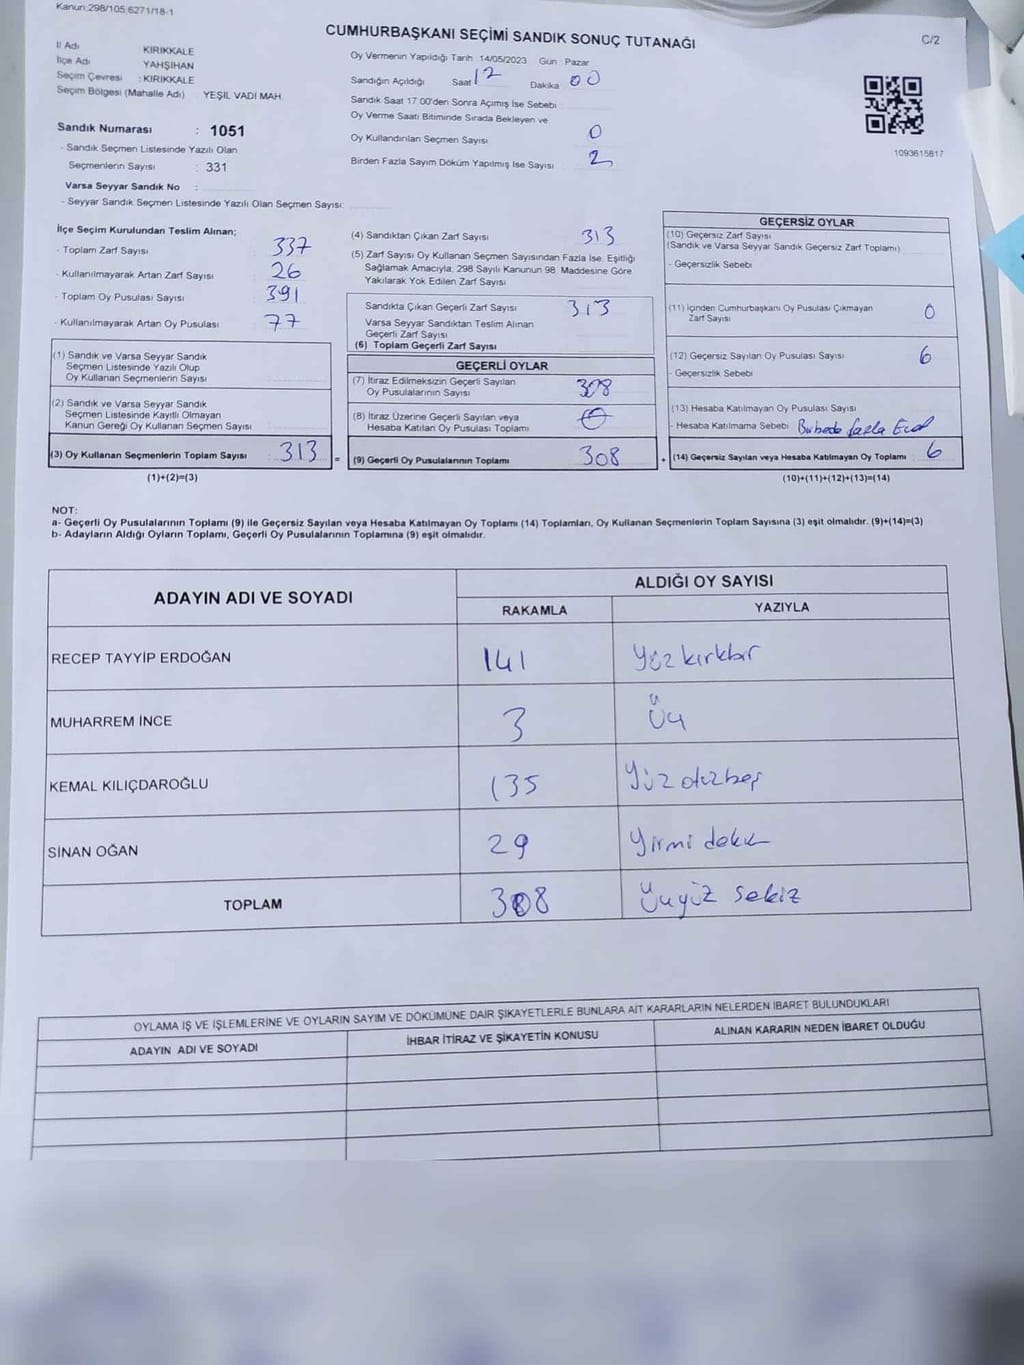 Kanun 298/105,6271/18-1
CUMHURBAŞKANI SEÇİMİ SANDIK SONUÇ TUTANAĞI
C/2
İl Adı KIRIKKALE
İlçe Adı YAHŞİHAN
Seçim Çevresi : KIRIKKALE
Seçim Bölgesi (Mahalle Adı) YEŞİL VADİ MAH.
Sandık Numarası : 1051
- Sandık Seçmen Listesinde Yazılı Olan
Seçmenlerin Sayısı : 331
Varsa Seyyar Sandık No :
- Seyyar Sandık Seçmen Listesinde Yazılı Olan Seçmen Sayısı:
Oy Vermenin Yapıldığı Tarih 14/05/2023 Gün Pazar
Sandığın Açıldığı Saat 12 Dakika 00
Sandık Saat 17:00'den Sonra Açımış İse Sebebi
Oy Verme Saati Bitiminde Sırada Bekleyen ve
Oy Kullandırılan Seçmen Sayısı 0
Birden Fazla Sayım Döküm Yapılmış İse Sayısı 2
1093615817
İlçe Seçim Kurulundan Teslim Alınan;
- Toplam Zarf Sayısı 337
- Kullanılmayarak Artan Zarf Sayısı 26
- Toplam Oy Pusulası Sayısı 391
- Kullanılmayarak Artan Oy Pusulası 77
(1) Sandık ve Varsa Seyyar Sandık
Seçmen Listesinde Yazılı Olup
Oy Kullanan Seçmenlerin Sayısı
(2) Sandık ve Varsa Seyyar Sandık
Seçmen Listesinde Kayıtlı Olmayan
Kanun Gereği Oy Kullanan Seçmen Sayısı
(3) Oy Kullanan Seçmenlerin Toplam Sayısı : 313 =
(1)+(2)=(3)
(4) Sandıktan Çıkan Zarf Sayısı 313
(5) Zarf Sayısı Oy Kullanan Seçmen Sayısından Fazla İse, Eşitliği
Sağlamak Amacıyla, 298 Sayılı Kanunun 98. Maddesine Göre
Yakılarak Yok Edilen Zarf Sayısı
Sandıkta Çıkan Geçerli Zarf Sayısı 313
Varsa Seyyar Sandıktan Teslim Alınan
Geçerli Zarf Sayısı
(6) Toplam Geçerli Zarf Sayısı
GEÇERLİ OYLAR
(7) İtiraz Edilmeksizin Geçerli Sayılan
Oy Pusulalarının Sayısı 308
(8) İtiraz Üzerine Geçerli Sayılan veya
Hesaba Katılan Oy Pusulası Toplamı 0
(9) Geçerli Oy Pusulalarının Toplamı 308 +
GEÇERSİZ OYLAR
(10) Geçersiz Zarf Sayısı
(Sandık ve Varsa Seyyar Sandık Geçersiz Zarf Toplamı)
- Geçersizlik Sebebi
(11) İçinden Cumhurbaşkanı Oy Pusulası Çıkmayan
Zarf Sayısı 0
(12) Geçersiz Sayılan Oy Pusulası Sayısı 6
- Geçersizlik Sebebi
(13) Hesaba Katılmayan Oy Pusulası Sayısı
- Hesaba Katılmama Sebebi fazla
(14) Geçersiz Sayılan veya Hesaba Katılmayan Oy Toplamı 6
(10)+(11)+(12)+(13)=(14)
NOT:
a- Geçerli Oy Pusulalarının Toplamı (9) ile Geçersiz Sayılan veya Hesaba Katılmayan Oy Toplamı (14) Toplamları, Oy Kullanan Seçmenlerin Toplam Sayısına (3) eşit olmalıdır. (9)+(14)=(3)
b- Adayların Aldığı Oyların Toplamı, Geçerli Oy Pusulalarının Toplamına (9) eşit olmalıdır.
ADAYIN ADI VE SOYADI ALDIĞI OY SAYISI
RAKAMLA YAZIYLA
RECEP TAYYİP ERDOĞAN 141 Yüzkırkbir
MUHARREM İNCE 3 Üç
KEMAL KILIÇDAROĞLU 135 Yüzotuzbeş
SİNAN OĞAN 29 Yirmi dokuz
TOPLAM 308 Üçyüz sekiz
OYLAMA İŞ VE İŞLEMLERİNE VE OYLARIN SAYIM VE DÖKÜMÜNE DAİR ŞİKAYETLERLE BUNLARA AİT KARARLARIN NELERDEN İBARET BULUNDUKLARI
ADAYIN ADI VE SOYADI İHBAR İTİRAZ VE ŞİKAYETİN KONUSU ALINAN KARARIN NEDEN İBARET OLDUĞU